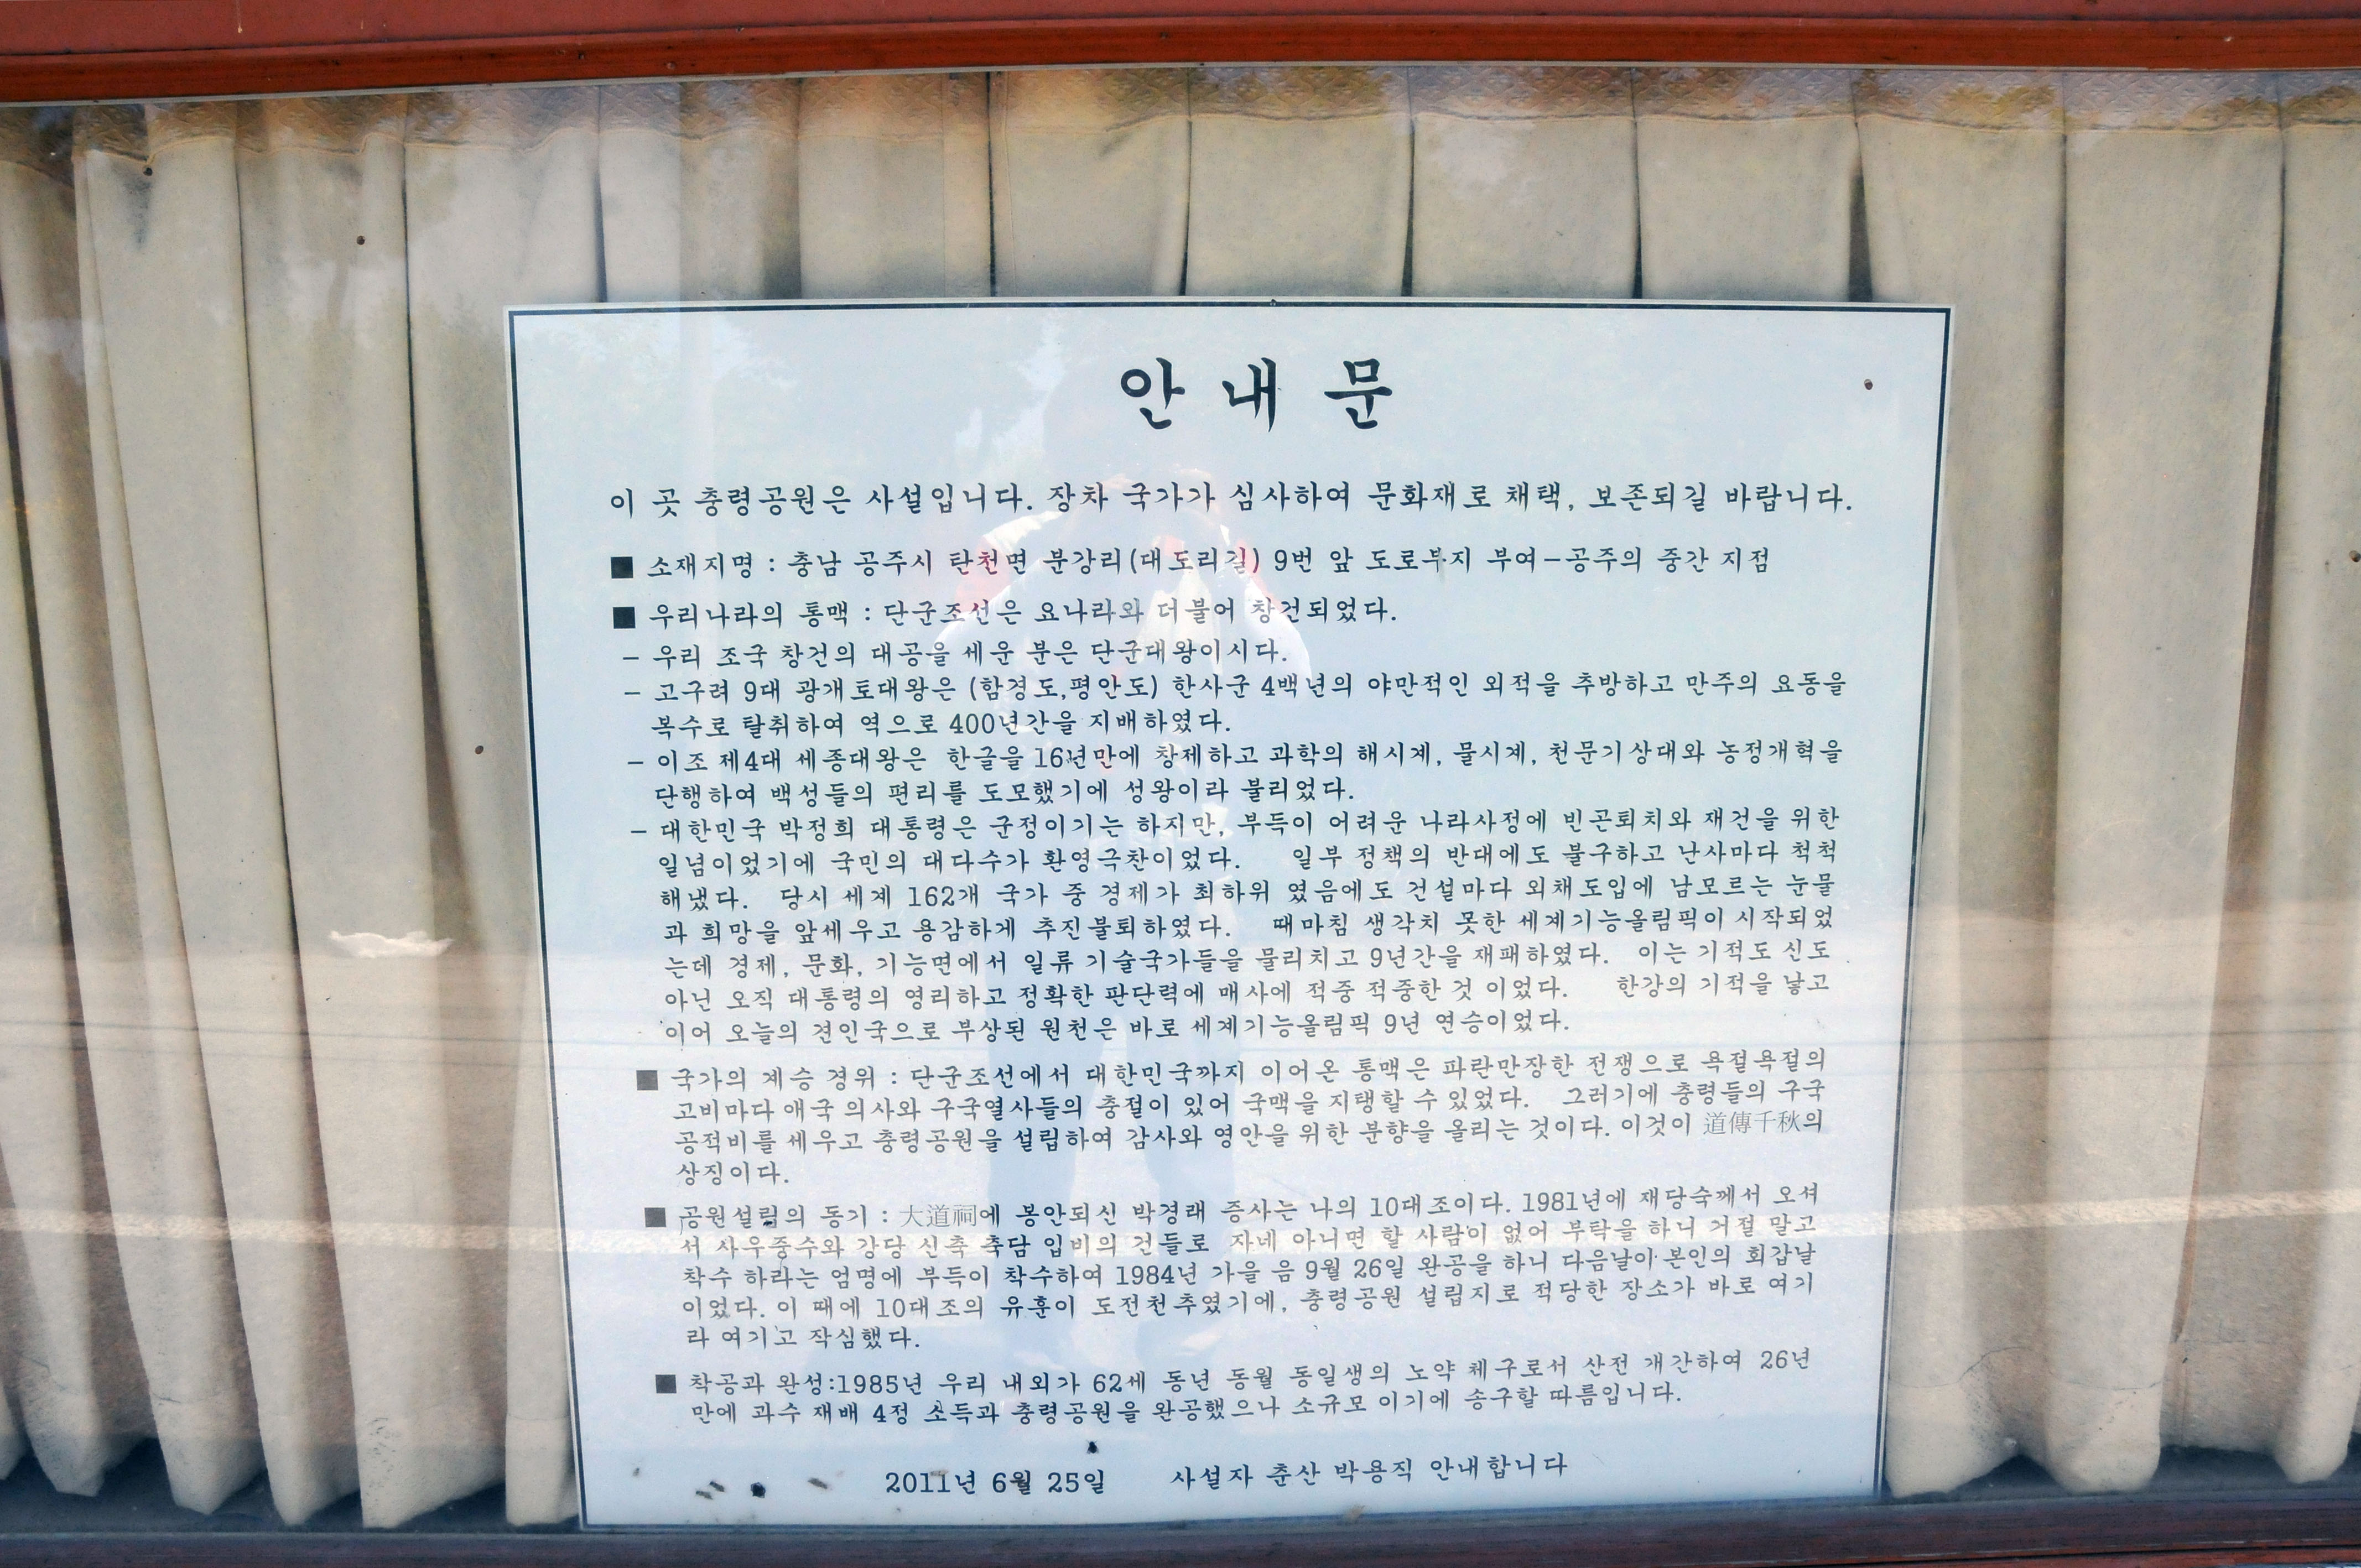 안내문
이 곳 충령공원은 사설입니다. 장차 국가가 심사하여 문화재로 채택, 보존되길 바랍니다.
■ 소재지명 : 충남 공주시 탄천면 분강리(대도리길) 9번 앞 도로부지 부여-공주의 중간 지점
■ 우리나라의 통맥 : 단군조선은 요나라와 더불어 창건되었다.
- 우리 조국 창건의 대공을 세운 분은 단군대왕이시다.
- 고구려 9대 광개토대왕은 (함경도,평안도) 한사군 4백년의 야만적인 외적을 추방하고 만주의 요동을
복수로 탈취하여 역으로 400년간을 지배하였다.
- 이조 제4대 세종대왕은 한글을 16년만에 창제하고 과학의 해시계, 물시계, 천문기상대와 농정개혁을
단행하여 백성들의 편리를 도모했기에 성왕이라 불리었다.
- 대한민국 박정희 대통령은 군정이기는 하지만, 부득이 어려운 나라사정에 빈곤퇴치와 재건을 위한
일념이었기에 국민의 대다수가 환영극찬이었다. 일부 정책의 반대에도 불구하고 난사마다 척척
해냈다. 당시 세계 162개 국가 중 경제가 최하위 였음에도 건설마다 외채도입에 남모르는 눈물
과 희망을 앞세우고 용감하게 추진불퇴하였다. 때마침 생각치 못한 세계기능올림픽이 시작되었
는데 경제, 문화, 기능면에서 일류 기술국가들을 물리치고 9년간을 재패하였다. 이는 기적도 신도
아닌 오직 대통령의 영리하고 정확한 판단력에 매사에 적중 적중한 것 이었다. 한강의 기적을 낳고
이어 오늘의 견인국으로 부상된 원천은 바로 세계기능올림픽 9년 연승이었다.
■ 국가의 계승 경위 : 단군조선에서 대한민국까지 이어온 통맥은 파란만장한 전쟁으로 욕절욕절의
고비마다 애국 의사와 구국열사들의 충절이 있어 국맥을 지탱할 수 있었다. 그러기에 충령들의 구국
공적비를 세우고 충령공원을 설립하여 감사와 영안을 위한 분향을 올리는 것이다. 이것이 道傳千秋의
상징이다.
■ 공원설립의 동기 : 大道祠에 봉안되신 박경래 증사는 나의 10대조이다. 1981년에 재당숙께서 오셔
서 사우중수와 강당 신축 축담 입비의 건들로 자네 아니면 할 사람이 없어 부탁을 하니 거절 말고
착수 하라는 엄명에 부득이 착수하여 1984년 가을 음 9월 26일 완공을 하니 다음날이 본인의 회갑날
이었다. 이 때에 10대조의 유훈이 도전천추였기에, 충령공원 설립지로 적당한 장소가 바로 여기
라 여기고 작심했다.
■ 착공과 완성:1985년 우리 내외가 62세 동년 동월 동일생의 노약 체구로서 산전 개간하여 26년
만에 과수 재배 4정 소득과 충령공원을 완공했으나 소규모 이기에 송구할 따름입니다.
2011년 6월 25일 사설자 춘산 박용직 안내합니다